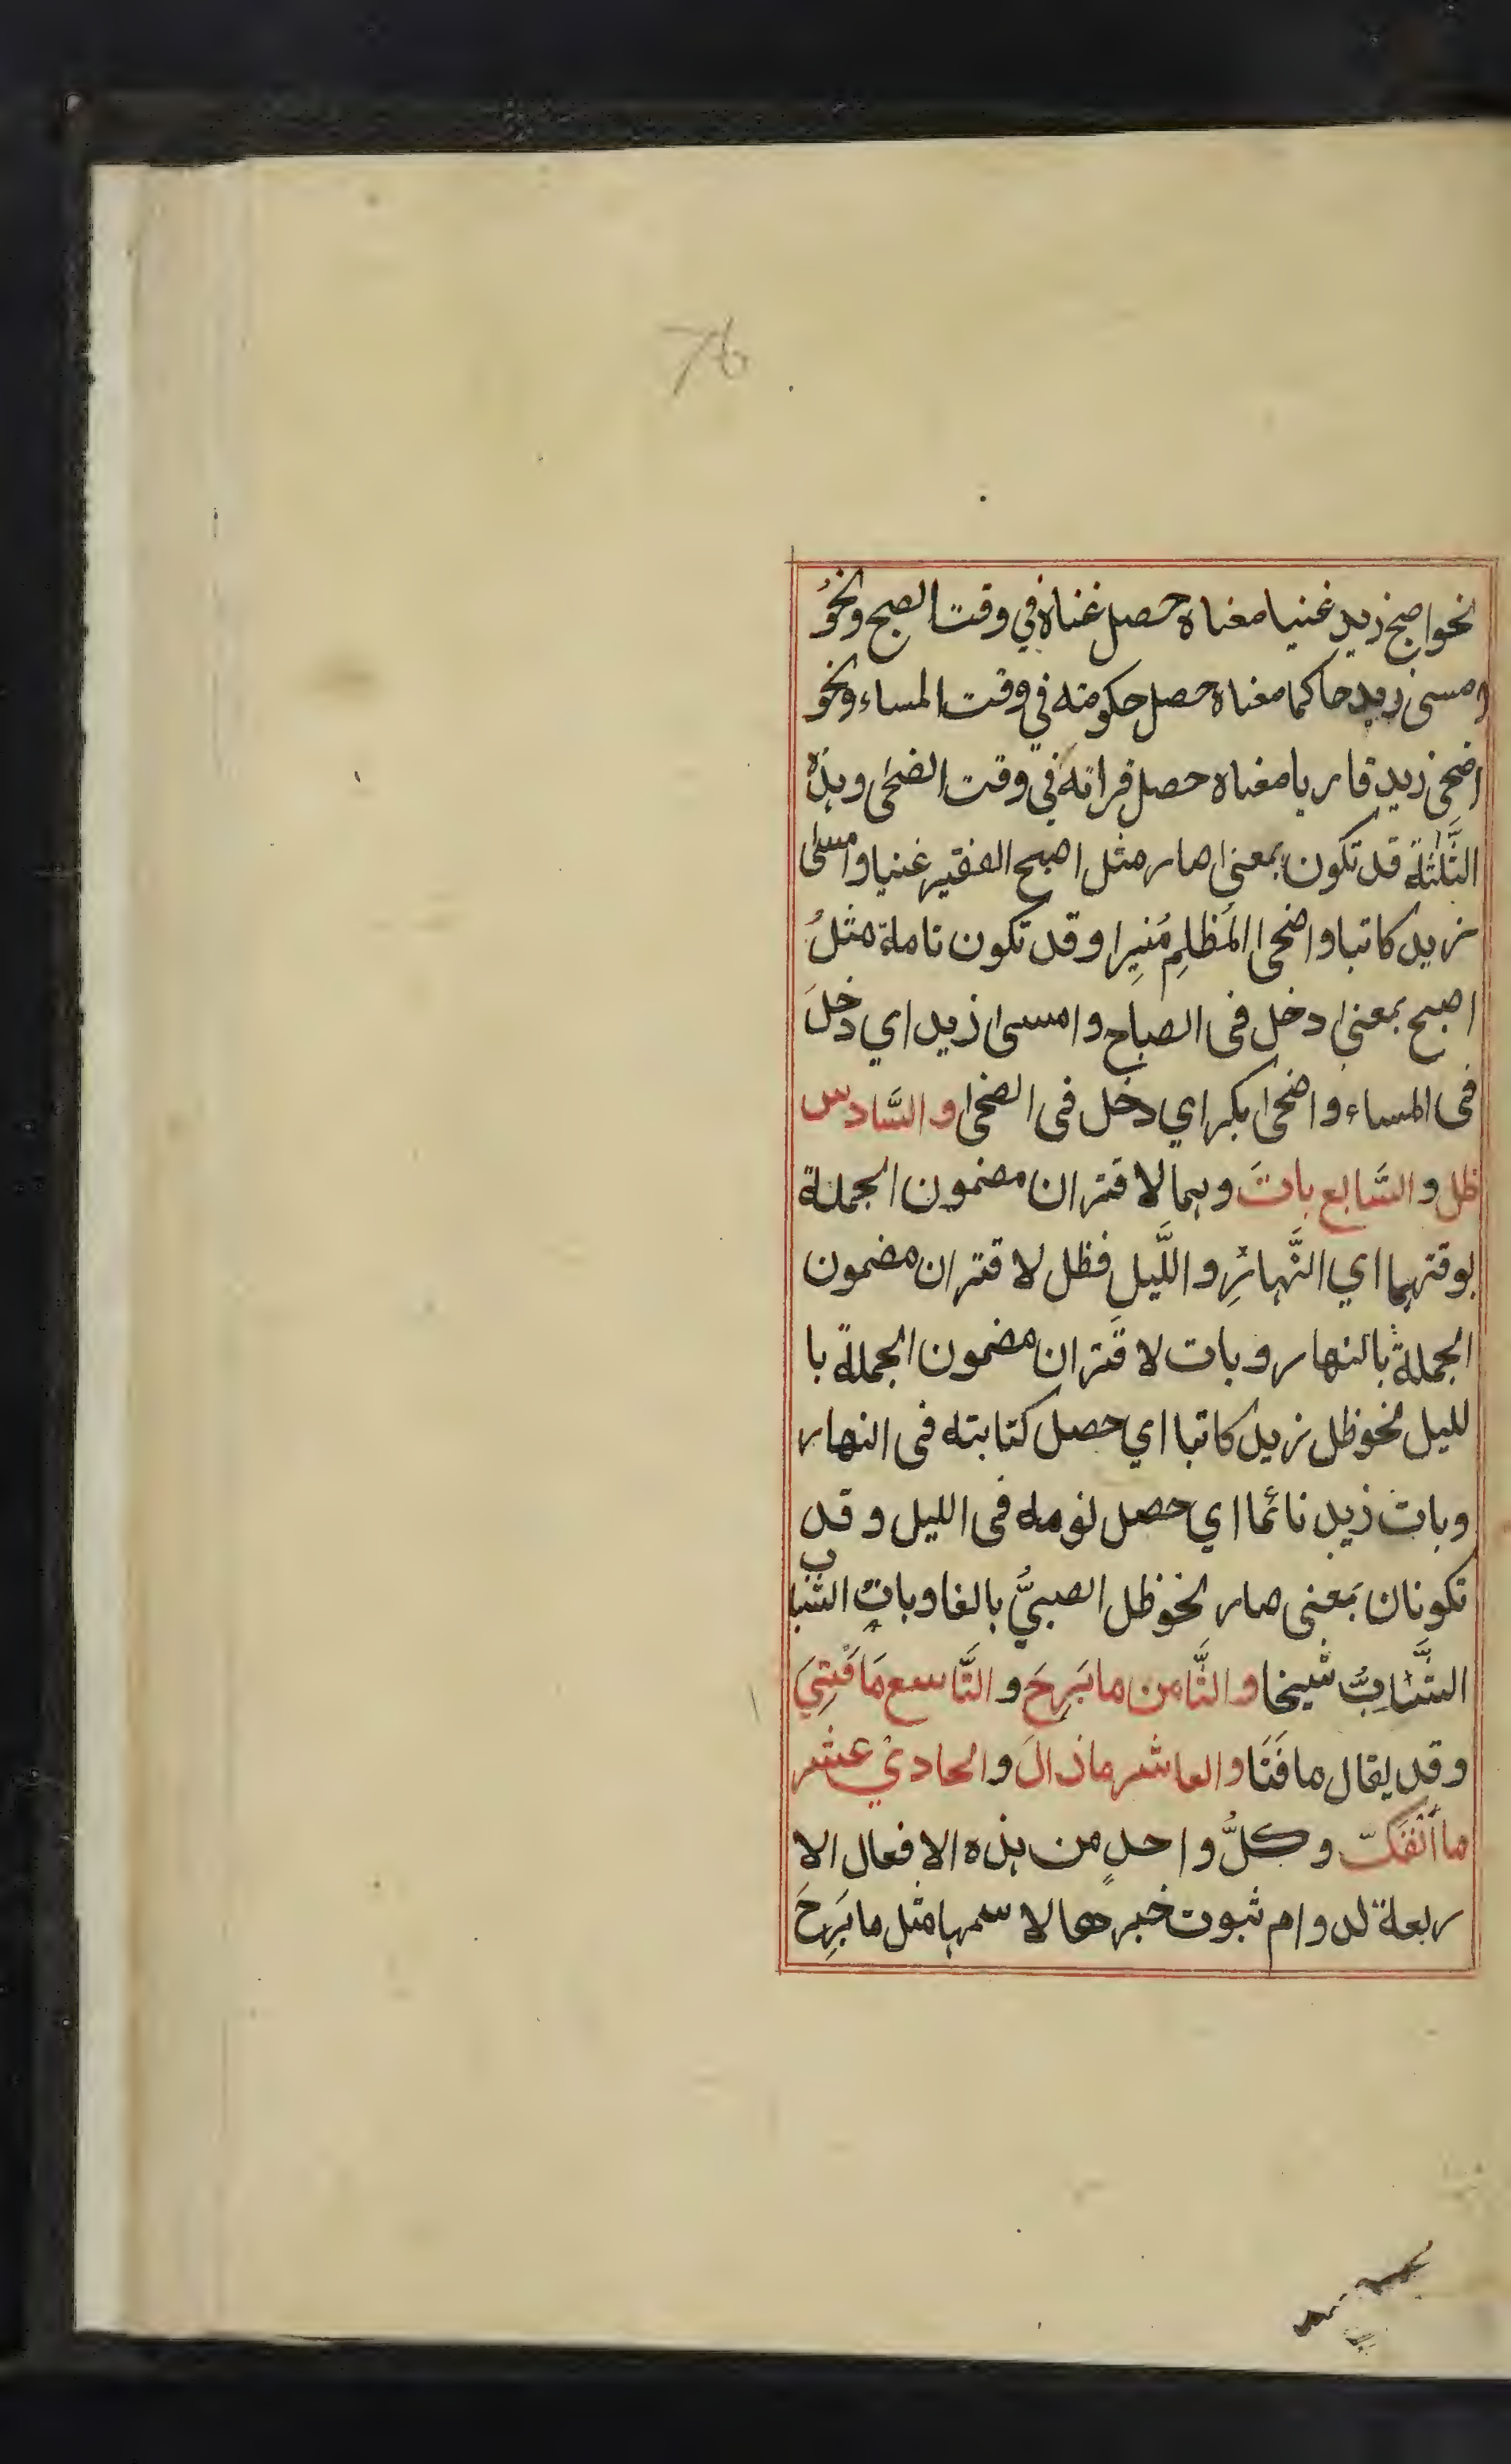 76
نحو اصبح زيد غنيا معناه حصل غناه في وقت الصبح ونحوُ
امسى زيد حاكما معناه حصل حكومته في وقت المساء ونحو
اضحى زيد قاريا معناه حصل قراته في وقت الضحى وہذہ
الثَّلٰثَة قد تكون بمعنى صار مثل اصبح الفقير غنيا وامسى
زيد كاتبا واضحى المُظلِم مُنيِرا وقد تكون تامة مثلُ
اصبح بمعنى دخل فى الصباح وامسى زيد اي دخلَ
فى المساء واضحى بكر اي دخل فى الضحى والسَّادس
ظل والسَّابع باتَ وہما لاقتران مضمون الجملة
بوقتہما اي النَّہارِ واللَّيلِ فظل لاقتران مضمون
الجملة بالنهار وبات لاقتران مضمون الجملة با
لليل نحو ظل زيد كاتبا اي حصل كتابته فى النهار
وبات زيد نائما اي حصل نومه فى الليل وقد
تكونان بمعنى صار نحو ظل الصبيُّ بالغا وبات الشباب
الشَّابُّ شيخا والثَّامن ما بَرِحَ والتَّاسع مَا فَتِيَ
وقد يقال ما فَتَا والعاشر ما ذالَ والحادي عشر
ما اَنْفَكّ وكلُّ واحدٍ من ہذہ الافعال الا
ربعة لدوام ثبوت خبرها لاسمہا مثل ما بَرِحَ